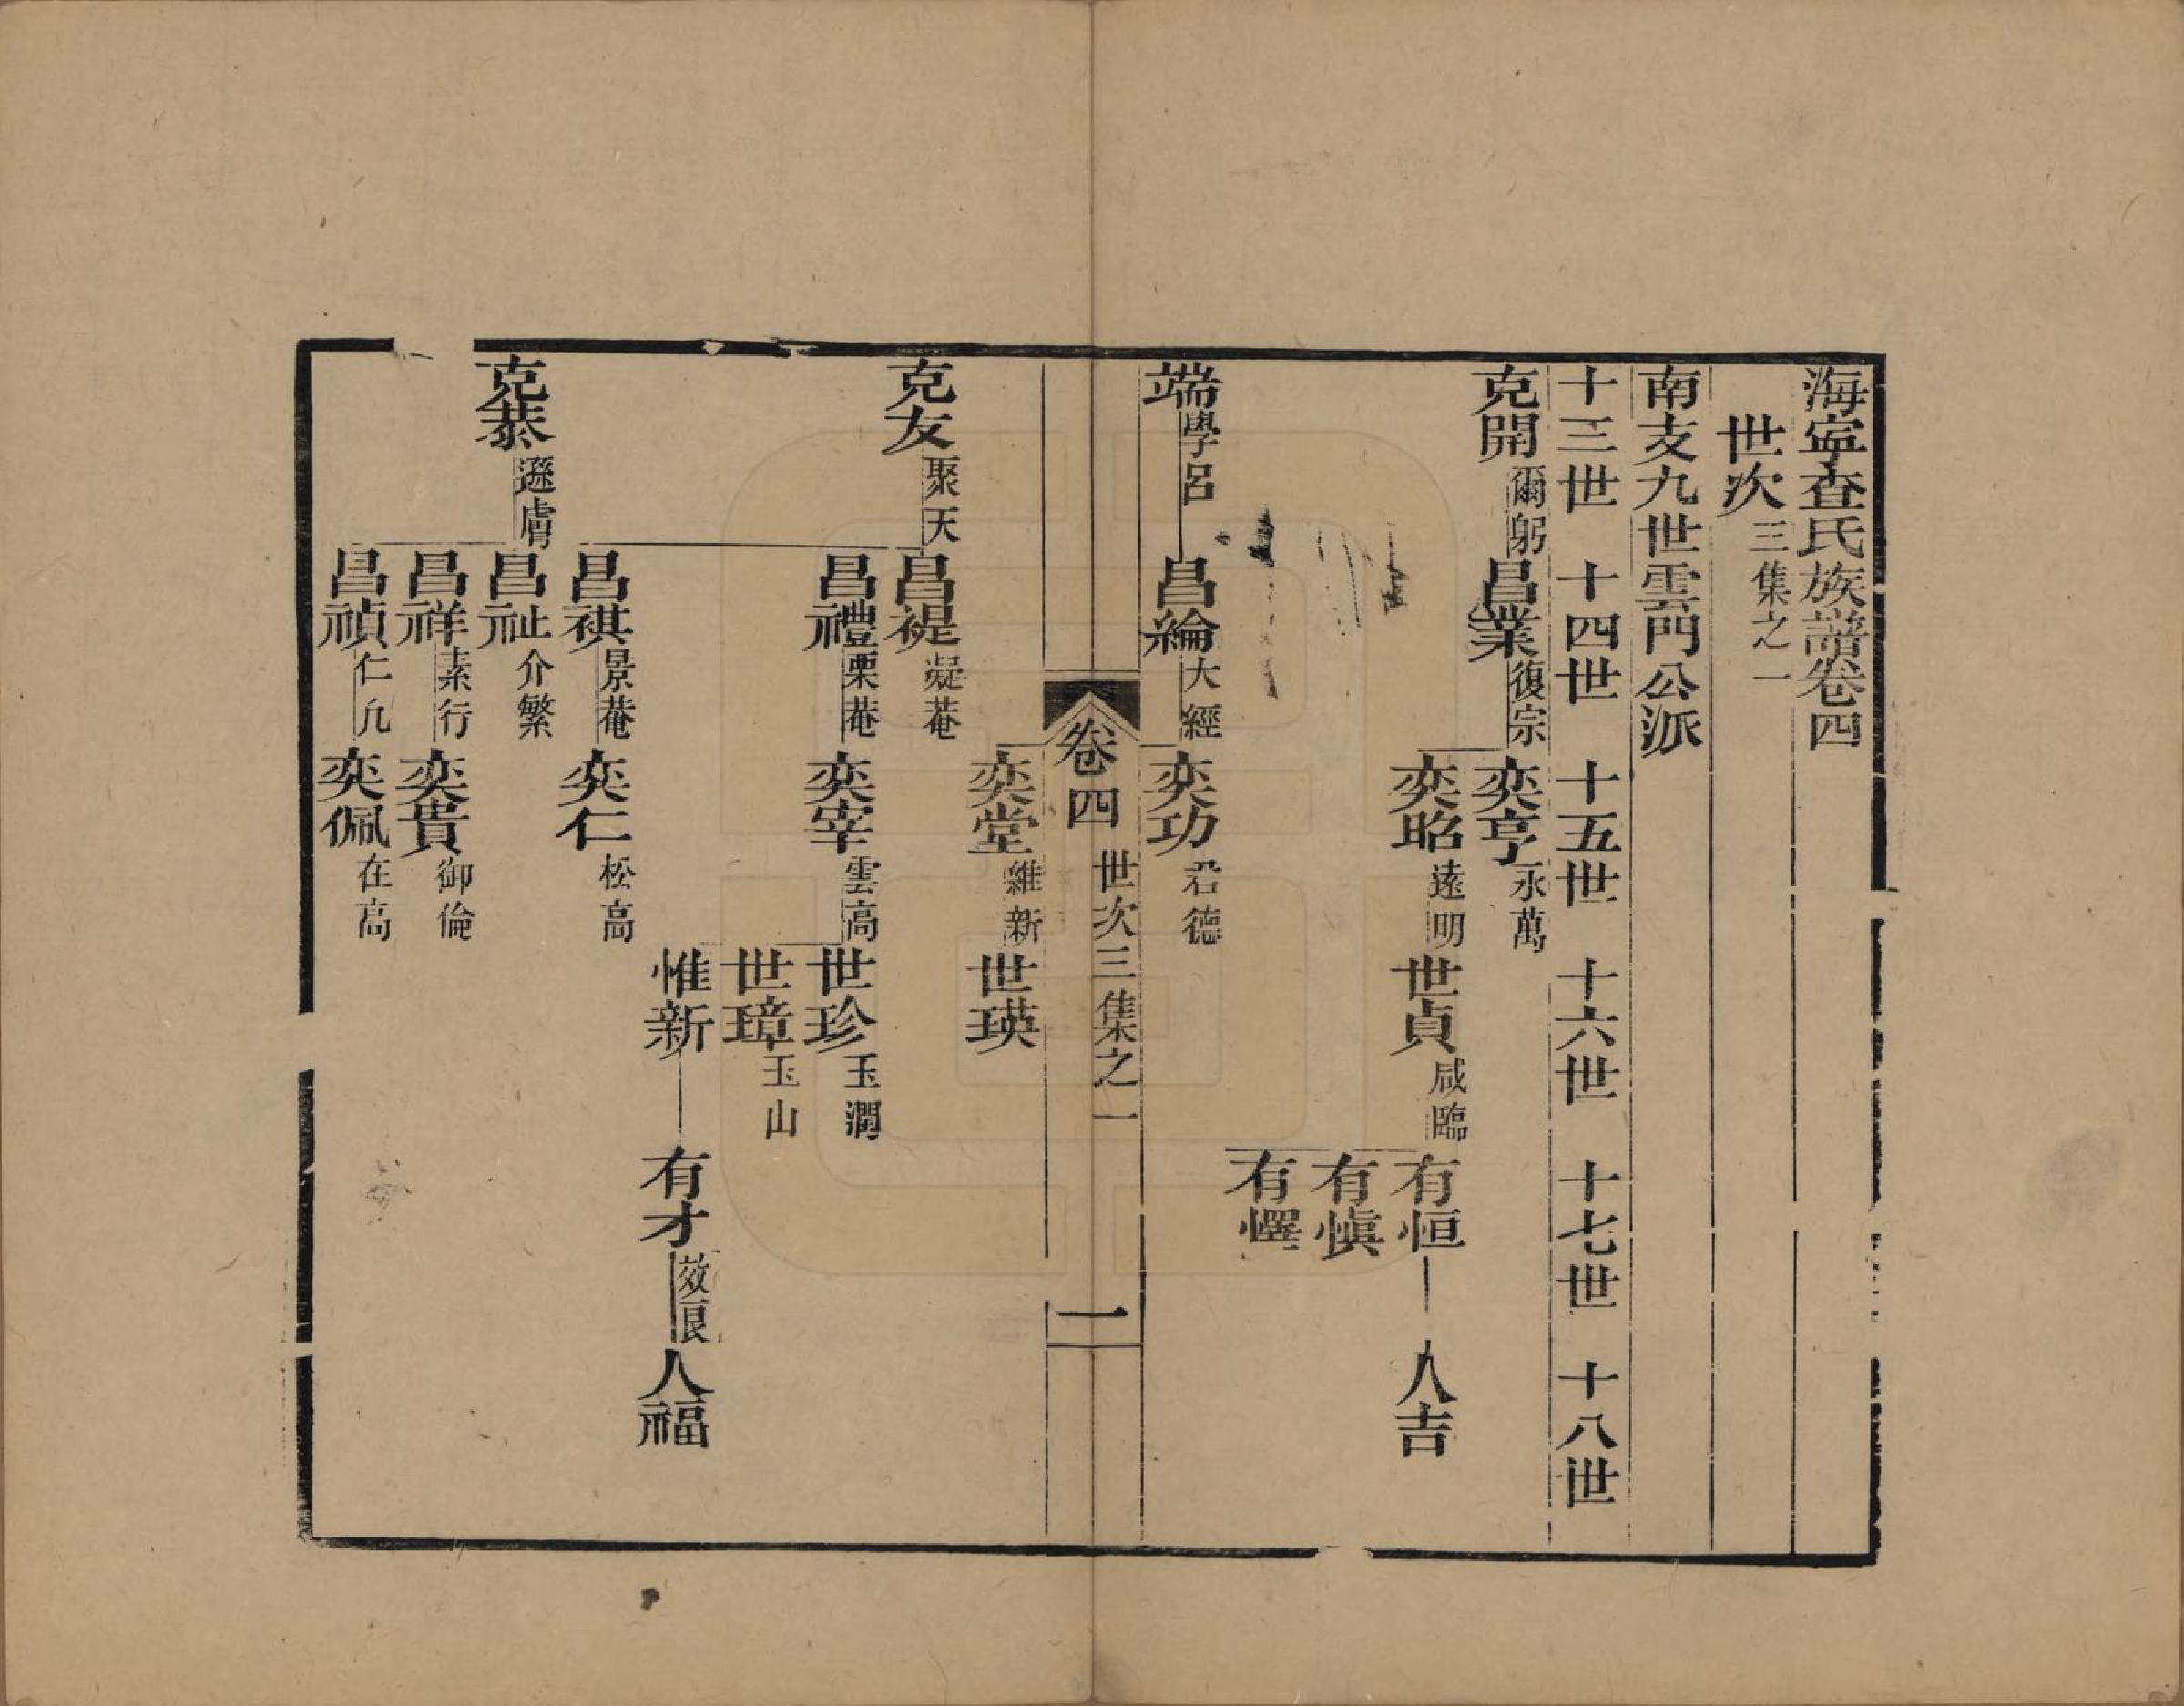 海寧查氏族譜卷四
世次三集之一
南支九世雲門公派
十三世 十四世 十五世 十六世 十七世 十八世
克開爾躬 昌業復宗 奕亨永萬
奕昭遠明 世貞咸臨 有恒 人吉
有愼
有懌
端學呂 昌綸大經 奕功君德
卷四 世次三集之一 一
奕堂維新 世瑛
克友聚天 昌禔凝菴
昌禮栗菴 奕宰雲高 世珍玉潤
世璋玉山
惟新 有才效良 人福
昌祺景菴 奕仁松高
克恭遜膚 昌祉介繁
昌祥素行 奕貴御倫
昌禎仁凢 奕佩在高